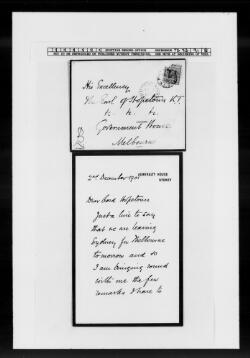 His Excellency
The Earl of Hopetoun K.T.
&c. &c. &c.
Government House
Melbourne
ADMIRALTY HOUSE
SYDNEY
2nd December 1901
Dear Lord Hopetoun
Just a line to say
that we are leaving
Sydney for Melbourne
tomorrow and so
I am bringing round
with me the few
remarks I have to